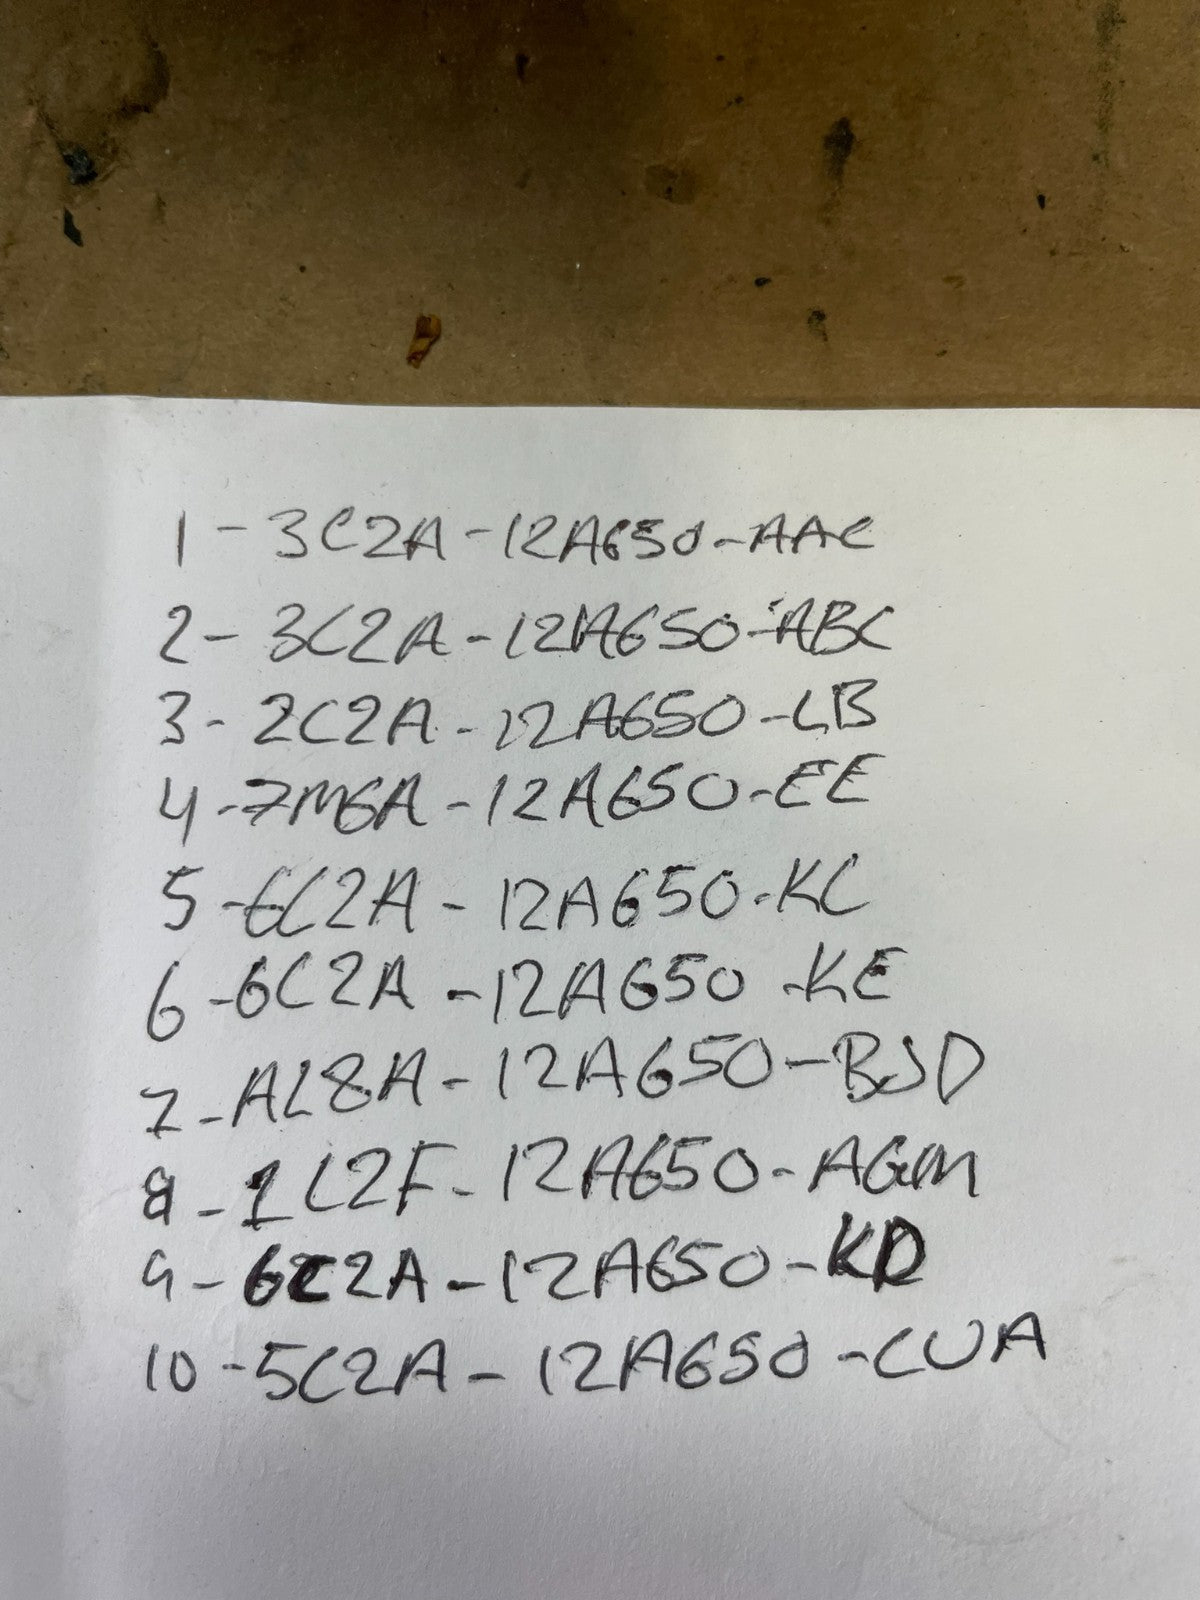 1 - 3C2A - 12A650 - AAC
2 - 3C2A - 12A650 - ABC
3 - 2C2A - 12A650 - LB
4 - 7M6A - 12A650 - EE
5 - 6C2A - 12A650 - KC
6 - 6C2A - 12A650 - KE
7 - AL8A - 12A650 - BJD
8 - 1C2F - 12A650 - AGM
9 - 6C2A - 12A650 - KD
10 - 5C2A - 12A650 - CUA